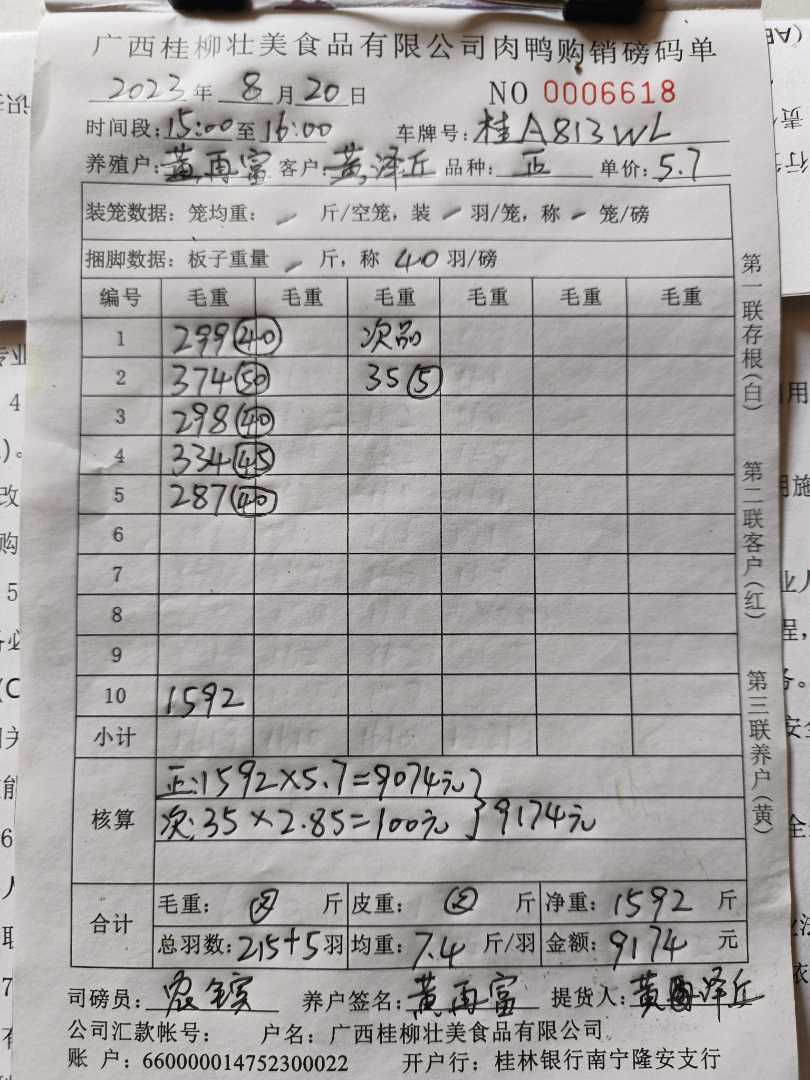 广西桂柳壮美食品有限公司肉鸭购销磅码单
2023年 8月20日 NO 0006618
时间段:15:00至16:00 车牌号:桂A813WL
养殖户:黄再富 客户:黄泽丘 品种:正 单价:5.7
装笼数据:笼均重: - 斤/空笼,装 - 羽/笼,称 - 笼/磅
捆脚数据:板子重量 - 斤,称 40 羽/磅
编号 毛重 毛重 毛重 毛重 毛重 毛重
1 299(40) 次品
2 374(50) 35(5)
3 298(40)
4 334(45)
5 287(40)
6
7
8
9
10 1592
小计
核算
正:1592×5.7=9074元
次:35×2.85=100元 } 9174元
合计
毛重: 斤 皮重: 斤 净重:1592 斤
总羽数:215+5羽 均重:7.4 斤/羽 金额:9174 元
司磅员: 养户签名:黄再富 提货人:黄泽丘
公司汇款帐号: 户名:广西桂柳壮美食品有限公司
账 户:660000014752300022 开户行:桂林银行南宁隆安支行
第一联存根(白)
第二联客户(红)
第三联养户(黄)